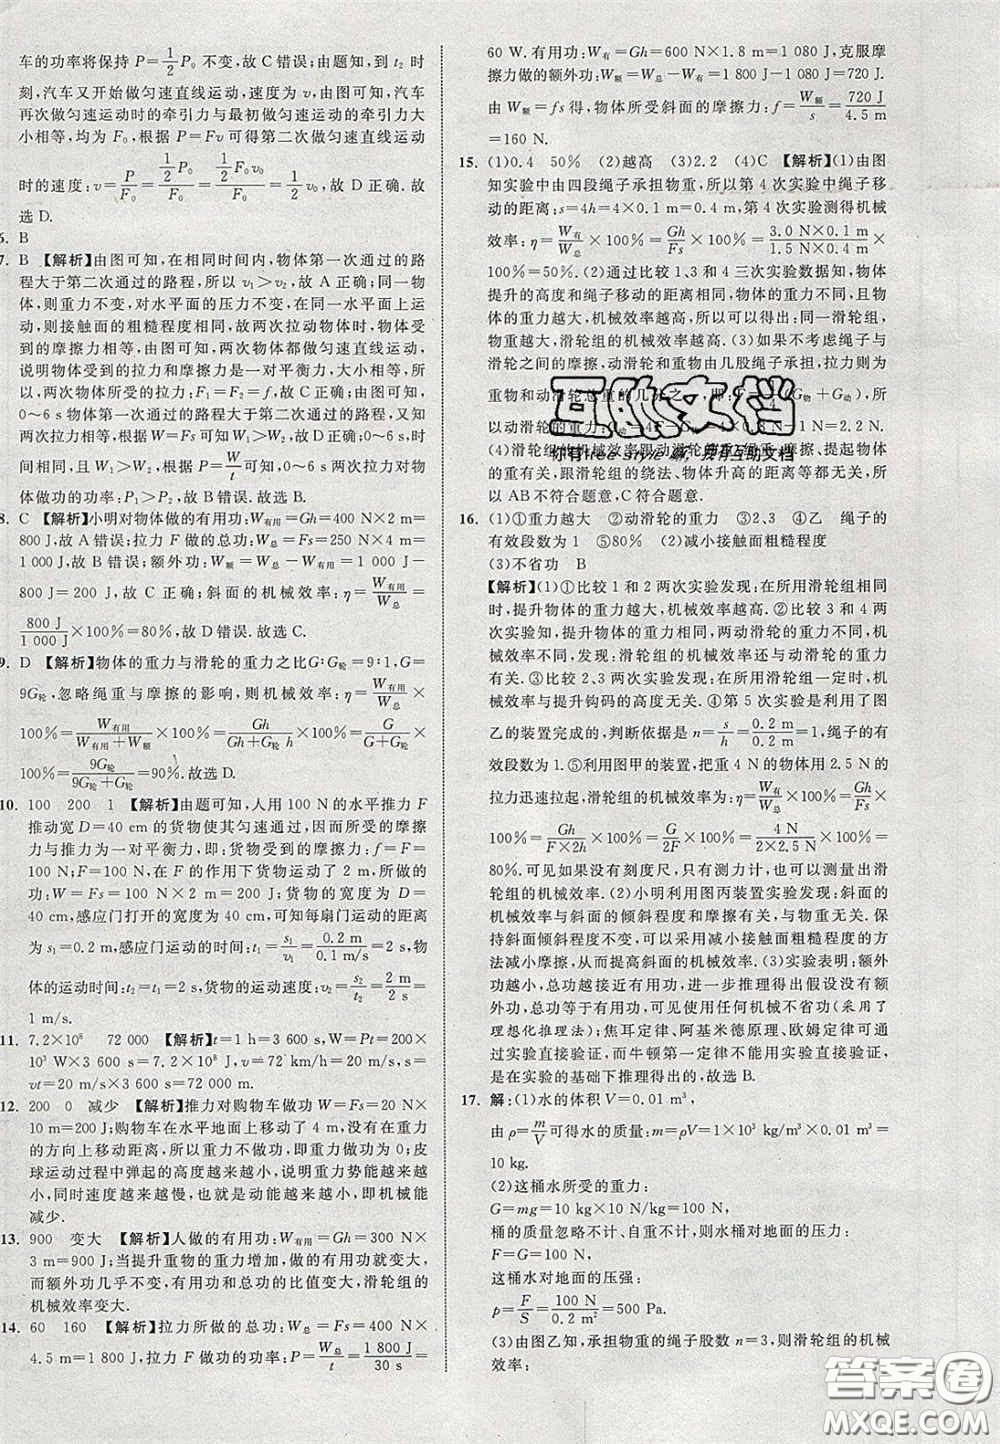 车的功率将保持 P=1/2P₀ 不变,故 C 错误;由题知,到 t₂ 时
刻,汽车又开始做匀速直线运动,速度为 v,由图可知,汽车
再次做匀速运动时的牵引力与最初做匀速运动的牵引力大
小相等,均为 F₀,根据 P=Fv 可得第二次做匀速直线运动
时的速度:v=P/F=(1/2P₀)/F₀=(1/2F₀v₀)/F₀=1/2v₀,故 D 正确.故
选 D.
6. B
7. B 【解析】由图可知,在相同时间内,物体第一次通过的路
程大于第二次通过的路程,所以 v₁>v₂;因为是同一物
体,则重力不变,对水平面的压力不变,在同一水平面上运
动,则接触面的粗糙程度相同,故两次拉动物体时,物体受
到的摩擦力相等,由图可知,两次物体都做匀速直线运动,
说明物体受到的拉力和摩擦力是一对平衡力,大小相等,所
以,两次物体所受的拉力:F₁=F₂=f,故 A 错误;由图可知,
0~6 s 物体第一次通过的路程大于第二次通过的路程,又知
两次拉力相同,根据 W=Fs 可知 W₁>W₂,故 B 正确;时
间相同,且 W₁>W₂,根据 P=W/t 可知,0~6 s 两次拉力对物
体做功的功率:P₁>P₂,故 B 错误.故选 B.
8. C 【解析】小明对物体做的有用功:W有用=Gh=400 N×2 m=
800 J,故 A 错误;拉力 F 做的总功:W总=Fs=250 N×4 m=
1 000 J,故 B 错误;额外功:W额=W总-W有用=1 000 J-
800 J=200 J,故 C 正确;斜面的机械效率:η=W有用/W总=
800 J/1 000 J×100%=80%,故 D 错误.故选 C.
9. D 【解析】物体的重力与滑轮的重力之比G:G轮=9:1,G=
9G轮,忽略绳重与摩擦的影响,则机械效率:η=W有用/W总×
100%=W有用/(W有用+W额)×100%=Gh/(Gh+G轮 h)×100%=G/(G+G轮)
×100%=9G轮/(9G轮+G轮)=90%.故选 D.
10. 100 200 1 【解析】由题可知,人用 100 N 的水平推力 F
推动宽 D=40 cm 的货物使其匀速通过,因而所受的摩擦
力与推力为一对平衡力,即:货物受到的摩擦力:f=F=
100 N;F=100 N,在 F 的作用下货物运动了 2 m,所做的
功:W=Fs=100 N×2 m=200 J;货物的宽度为 D=
40 cm,感应门打开的宽度为 40 cm,可知每扇门运动的距离
为 s₁=0.2 m,感应门运动的时间:t₁=s₁/v₁=0.2 m/0.1 m/s=2 s,物
体的运动时间:t₂=t₁=2 s,货物的运动速度:v₂=s₂/t₂=2 m/2 s=
1 m/s.
11. 7.2×10⁸ 72 000 【解析】t=1 h=3 600 s,W=Pt=200×
10³ W×3 600 s=7.2×10⁸ J;v=72 km/h=20 m/s,s=
vt=20 m/s×3 600 s=72 000 m.
12. 200 0 减少 【解析】推力对购物车做功 W=Fs=20 N×
10 m=200 J;购物车在水平地面上移动了 5 m,没有在重力
的方向上移动距离,所以重力不做功,即重力做功为 0;皮
球运动过程中弹起的高度越来越小,说明重力势能越来越
小,同时速度越来越慢,也就是动能越来越小,即机械能
减少.
13. 900 变大 【解析】人做的有用功:W有用=Gh=300 N×
3 m=900 J;当提升重物的重力增加,做的有用功就变大,
而额外功几乎不变,有用功和总功的比值变大,滑轮组的
机械效率变大.
14. 60 160 【解析】拉力所做的总功:W总=Fs=400 N×
4.5 m=1 800 J,拉力 F 做功的功率:P=W总/t=1 800 J/30 s=
60 W.有用功:W有=Gh=600 N×1.8 m=1 080 J,克服摩
擦力做的额外功:W额=W总-W有=1 800 J-1 080 J=720 J.
由 W额=fs 得,物体所受斜面的摩擦力:f=W额/s=720 J/4.5 m
=160 N.
15. (1)0.4 50% (2)越高 (3)2.2 (4)C 【解析】(1)由图
知实验中由四段绳子承担物重,所以第 4 次实验中绳子移
动的距离:s=4h=4×0.1 m=0.4 m,第 4 次实验测得机械
效率:η=W有/W总×100%=Gh/Fs×100%=3.0 N×0.1 m/1.5 N×0.4 m×
100%=50%.(2)通过比较 1、3 和 4 三次实验数据知,物体
提升的高度和绳子移动的距离相同,物体的重力不同,且物
体的重力越大,机械效率越高,可以得出:同一滑轮组,
物重越大,滑轮组的机械效率越高.(3)如果不考虑绳子与
滑轮之间的摩擦,动滑轮和重物由几股绳子承担,拉力则为
重物和动滑轮总重的几分之一,即:F=1/4(G物+G动),所以
(4)滑轮组的机械效率跟动滑轮的重、绳重、摩擦、提起物体
的重有关,跟滑轮组的绕法、物体升高的高度等无关,所
以 AB 不符合题意,C 符合题意.
16. (1)①重力越大 ②动滑轮的重力 ③2、3 ④乙 绳子的
有效段数为 1 ⑤80% (2)减小接触面粗糙程度
(3)不省功 B
【解析】(1)①比较 1 和 2 两次实验发现:在所用滑轮组相同
时,提升物体的重力越大,机械效率越高.②比较 3 和 4 两
次实验发现:在提升物体的重力相同时,两动滑轮的重力
不同,发现:滑轮组的机械效率还与动滑轮的重力有关.
③比较 2、3 两次实验发现:在所用滑轮组一定时,机械效
率与提升钩码的高度无关.④第 5 次实验是利用了图
乙的装置完成的,判断依据是 n=s/h=0.2 m/0.2 m=1,绳子段
数为 1.⑤若利用图甲的装置,把重 4 N 的物体用 2.5 N 的
拉力迅速拉起,滑轮组的机械效率:η=W有/W总×100%=Gh/Fs×
100%=Gh/F×2h×100%=G/2F×100%=4 N/2×2.5 N×100%=
80%.可见如果没有刻度尺,只有测力计,也可以测出滑
轮组的机械效率.(2)小明利用图丙装置实验发现:斜面的
机械效率与斜面的倾斜程度和摩擦有关,与物重无关.
保持斜面倾斜程度不变,可以采用减小接触面粗糙程度的方
法减小摩擦,从而提高斜面的机械效率.(3)实验表明:额外
功越小,总功与有用功越接近,进一步推理得出假设没有额
外功,总功等于有用功,可见使用任何机械不省功(采用了
理想化推理法);焦耳定律、阿基米德原理、欧姆定律可以通
过实验直接验证,而牛顿第一定律不能用实验直接验证,
是在实验的基础上推理得出的,故选 B.
17. 解:(1)水的体积 V=0.01 m³,
由 ρ=m/V可得水的质量:m=ρV=1×10³ kg/m³×0.01 m³=
10 kg.
(2)这桶水所受的重力:
G=mg=10 kg×10 N/kg=100 N,
桶的质量忽略不计、自重不计,则水桶对地面的压力:
F=G=100 N.
这桶水对地面的压强:
p=F/S=100 N/0.2 m²=500 Pa.
(3)由图乙知,承担物重的绳子股数 n=3,则滑轮组的机械
效率:
互助文档
你有free style 嘛,我有互助文档
答案圈
MXQE.COM